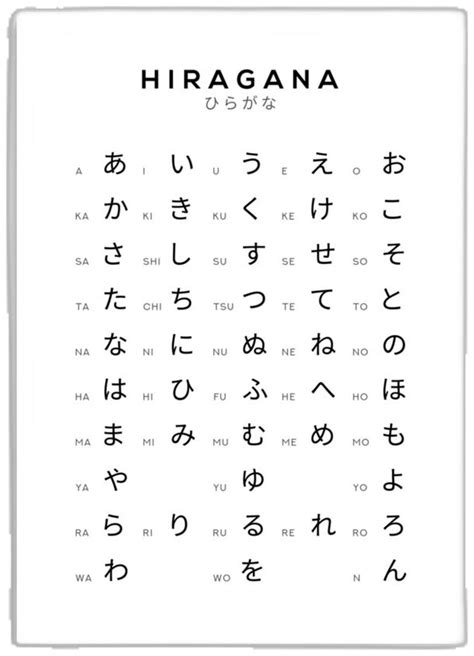 HIRAGANA
ひらがな
A あ I い U う E え O お
KA か KI き KU く KE け KO こ
SA さ SHI し SU す SE せ SO そ
TA た CHI ち TSU つ TE て TO と
NA な NI に NU ぬ NE ね NO の
HA は HI ひ FU ふ HE へ HO ほ
MA ま MI み MU む ME め MO も
YA や YU ゆ YO よ
RA ら RI り RU る RE れ RO ろ
WA わ WO を N ん